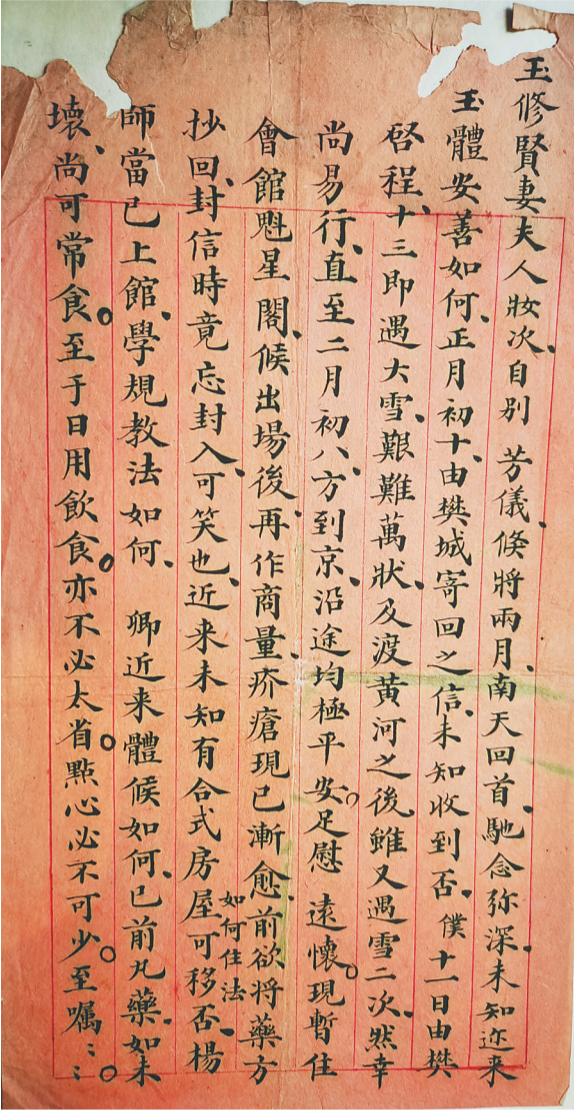 玉修賢妻夫人妝次、自别 芳儀、倏將兩月、南天回首、馳念弥深、未知近來
玉體安善如何、正月初十、由樊城寄回之信、未知收到否、僕十一日由樊
啓程、十三即遇大雪、艱難萬狀、及渡黄河之後、雖又遇雪二次、然幸
尚易行、直至二月初八、方到京、沿途均極平安。足慰 遠懷。現暫住
會館魁星閣、候出場後、再作商量、疥瘡現已漸愈、前欲將藥方
抄回、封信時竟忘封入、可笑也、近来未知有合式房屋可移否、楊
如何住法
師當已上館、學規教法如何、 卿近来體候如何、已前凡藥、如未
壞、尚可常食。至于日用飲食。亦不必太省。點心必不可少。至嘱〻〻